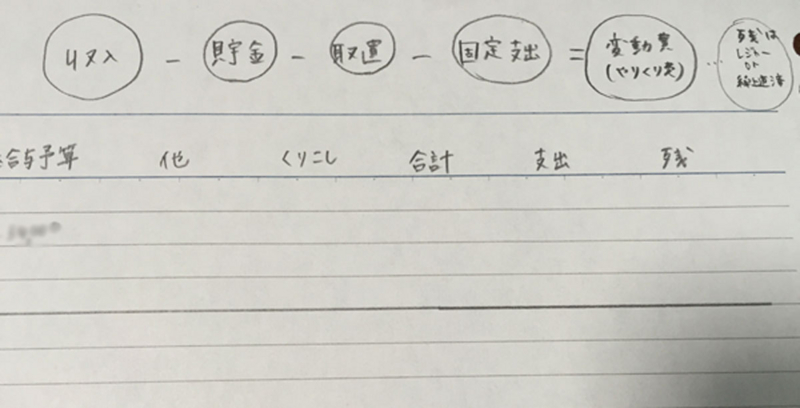 収入 - 貯金 - 取置 - 固定支出 = 変動費(やりくり費) … 残はレジャー or 繰上返済
給与予算 他 くりこし 合計 支出 残